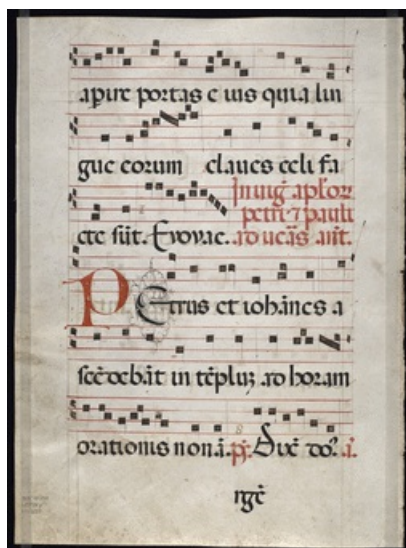 apire portas e ius quia lin
gue eorum claues celi fa
In uiḡ aploꝝ
petri ⁊ pauli
cte sūt. Euouae. ad uesp̄as ant.
PEtrus et iohānes a
scēdebāt in tēpluꝫ ad horam
orationis nonā. p̄s. Dixē do⁊.